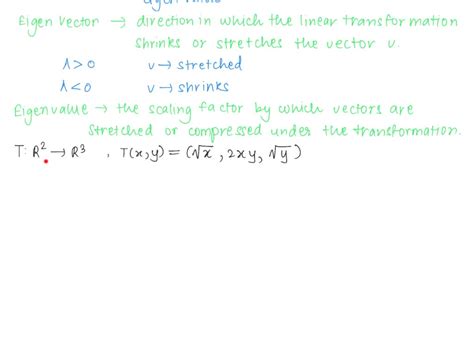 Eigen vector → direction in which the linear transformation
shrinks or stretches the vector v.
λ>0 v→ stretched
λ<0 v→ shrinks
Eigenvalue → the scaling factor by which vectors are
stretched or compressed under the transformation.
T: R² → R³ , T(x,y) = (√x , 2xy, √y )